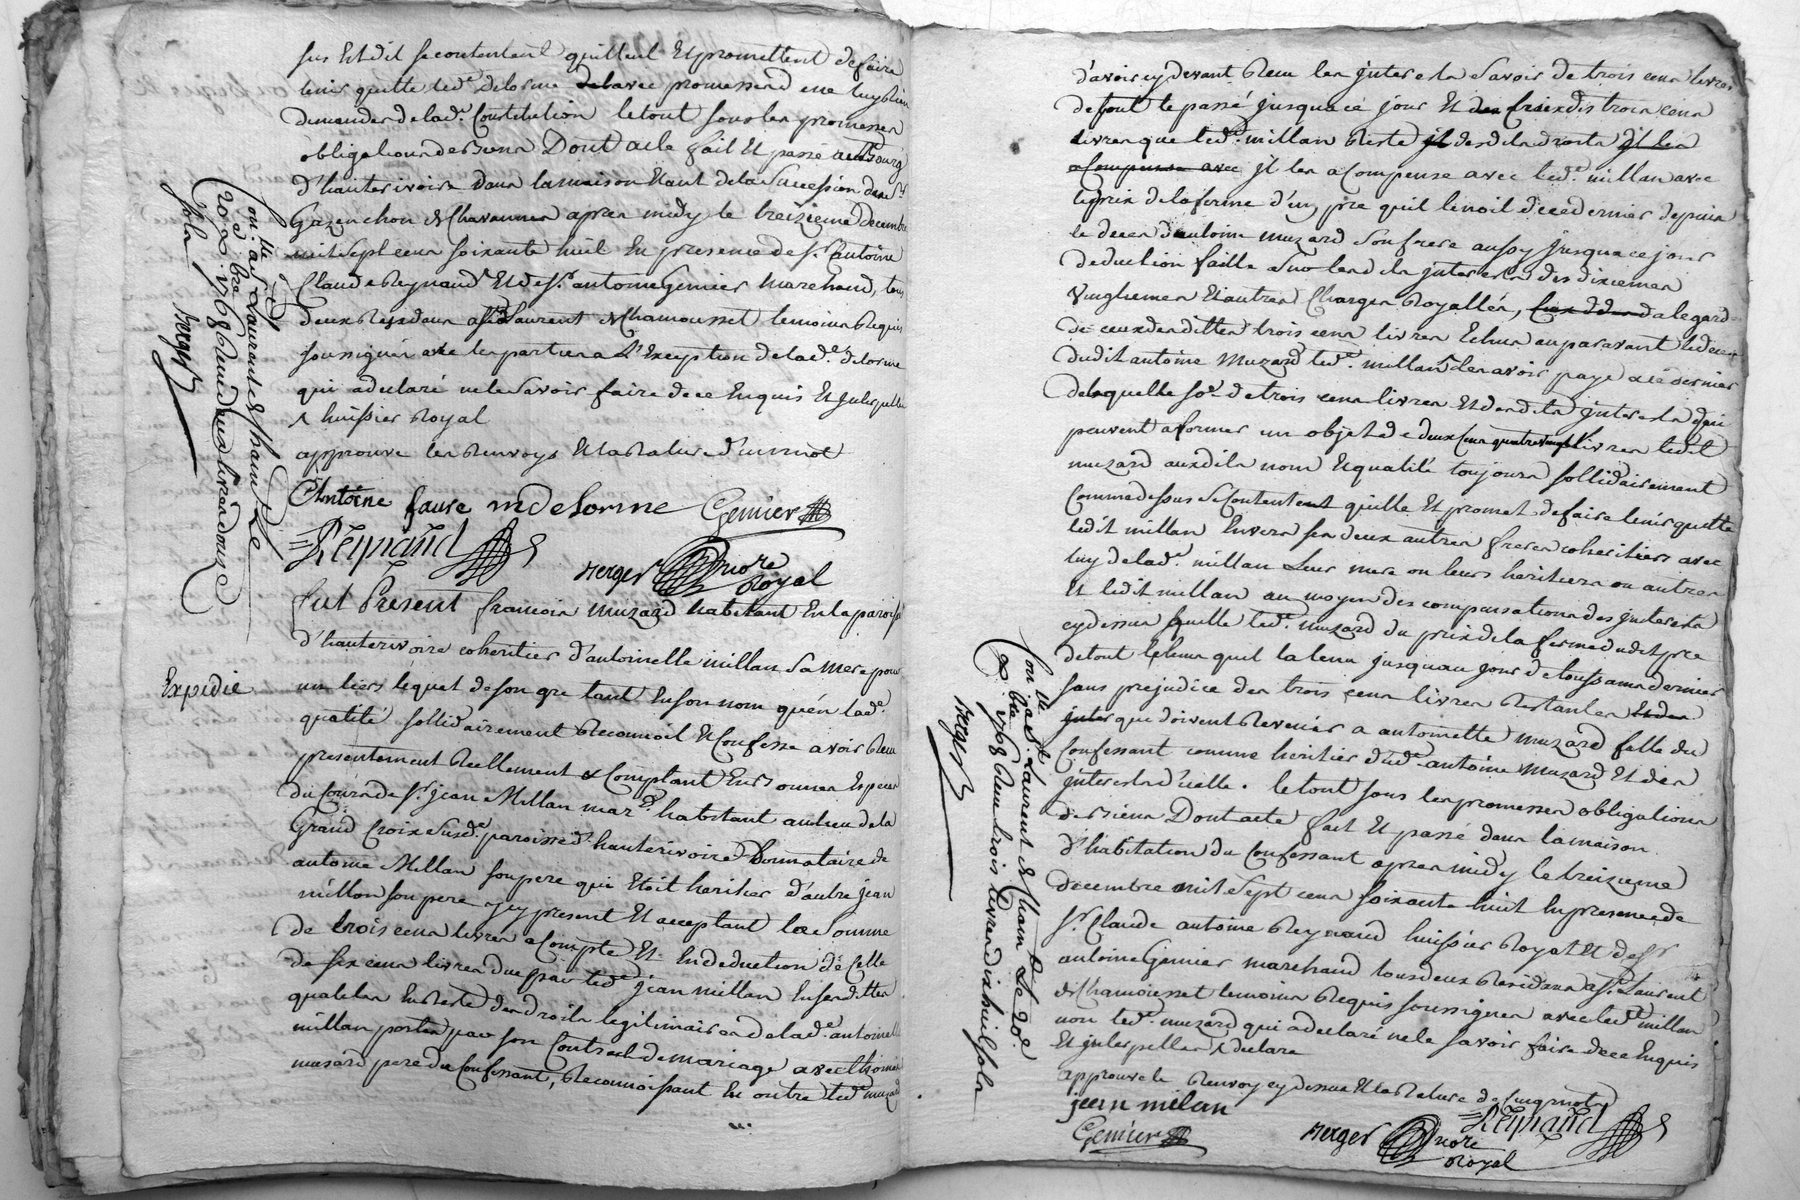 sus Et dit se contentent quittent Et promettent de faire
tenir quitte led.e delorme avec promesse de ne luy rien
demander de lad.e Constitution le tout sous les promesses
obligations de Biens Dont acte fait Et passé au Bourg
d'hauterivoire dans la maison Etant de la succession de
Gazanchon de Chavannes apres midy le treizieme decembre
mil sept cens soixante huit En presence de s.r antoine
Claude Reynaud Et de s.r antoine Genier Marchand, tous
deux Residans a s.t Laurent de Chamousset temoins Requis
soussignés avec les parties a L'Exception de lad.e delorme
qui a declaré ne le savoir faire de ce Enquis Et Interpellée
^ huissier Royal
approuvé les Renvoys Et la Rature d'un mot
Antoine faure mdelorme Genier
Reynaud
Berger Nore Royal
Con.lle a s.t Laurent de Cham.t Le
20 x.bre 1768 Reçu deux livres douze
sols Berger
Expedié
fut Present francois Muzard habitant En la paroisse
d'hauterivoire coheritier d'antoinette millan sa mere pour
un tiers lequel de son gre tant En son nom qu'en lad.e
qualité sollidairement Reconnoit Et Confesse avoir Reçu
presentement Reellement & Comptant En Bonnes Especes
du Cours de s.r jean Millan mar.d habitant au lieu de la
Grand Croix susd.e paroisse d'hauterivoire Donnataire de
antoine Millan son pere qui Etoit heritier d'autre jean
millon son pere icy present Et acceptant la somme
de trois cens livres a Compte Et En deduction de Celle
de six cens livres due par led.t jean millan En sesdittes
qualités En Reste des droits legitimaires de lad.e antoinette
millan portés par son Contract de mariage avec thomas
muzard pere du Confessant, Reconnoissant En outre led.t muzard
d'avoir cy devant Reçu les Interests a Savoir de trois cens livres
de tout le passé jusqua ce jour Et de ceux desdis trois cens
livres que led.t millan Reste desdits droits il les
a Compense avec il les a Compense avec led.t millan avec
le prix de la ferme d'un pre quil tenoit de ce dernier depuis
le deces d'antoine Muzard son frere aussy jusqua ce jour
deduction faitte sur lesdits Interests des dixiemes
vingtiemes Et autres Charges Royalles, a legard
de ceux desdittes trois cens livres Echus auparavant le deces
dudit antoine Muzard led.t millan les avoir payé a ce dernier
de laquelle so.e de trois cens livres Et desdits Interests qui
peuvent a former un objet de deux cens quatre vingt livres ledit
muzard auxdits nom Et qualité toujours sollidairement
Comme dessus se Contentent quitte Et promet de faire tenir quitte
ledit millan Envers ses deux autres freres coheritiers avec
luy de lad.e millan Leur mere ou leurs heritiers ou autres
Et ledit millan au moyen des compensations des Interests
cy dessus quitte led.t Muzard du prix de la ferme dudit pre
de tout le tems quil la tenu jusquau jour de toussaints dernier
sans prejudice des trois cens livres Restantes Et des
Inter que doivent Revenir a antoinette Muzard fille du
Confessant comme heritier dud.t antoine Muzard Et des
Interests d'icelle. le tout sous les promesses obligations
de Biens Dont acte fait Et passé dans la maison
d'habitation du Confessant apres midy le treizieme
decembre mil sept cens soixante huit En presence de
s.r Claude antoine Reynaud huissier Royal Et de s.r
antoine Genier marchand tous deux Residans a s.t Laurent
de Chamousset temoins Requis soussignés avec led.t millan
non led.t muzard qui a declaré ne le savoir faire de ce Enquis
Et Interpellé ^ declare
approuvé le Renvoy cy dessus Et la Rature de cinq mots
jean milan
Genier Berger Nore Royal Reynaud
Con.lle a s.t Laurent de Cham.t Le 20.e
x.bre 1768 Reçu trois livres dix huit sols
Berger